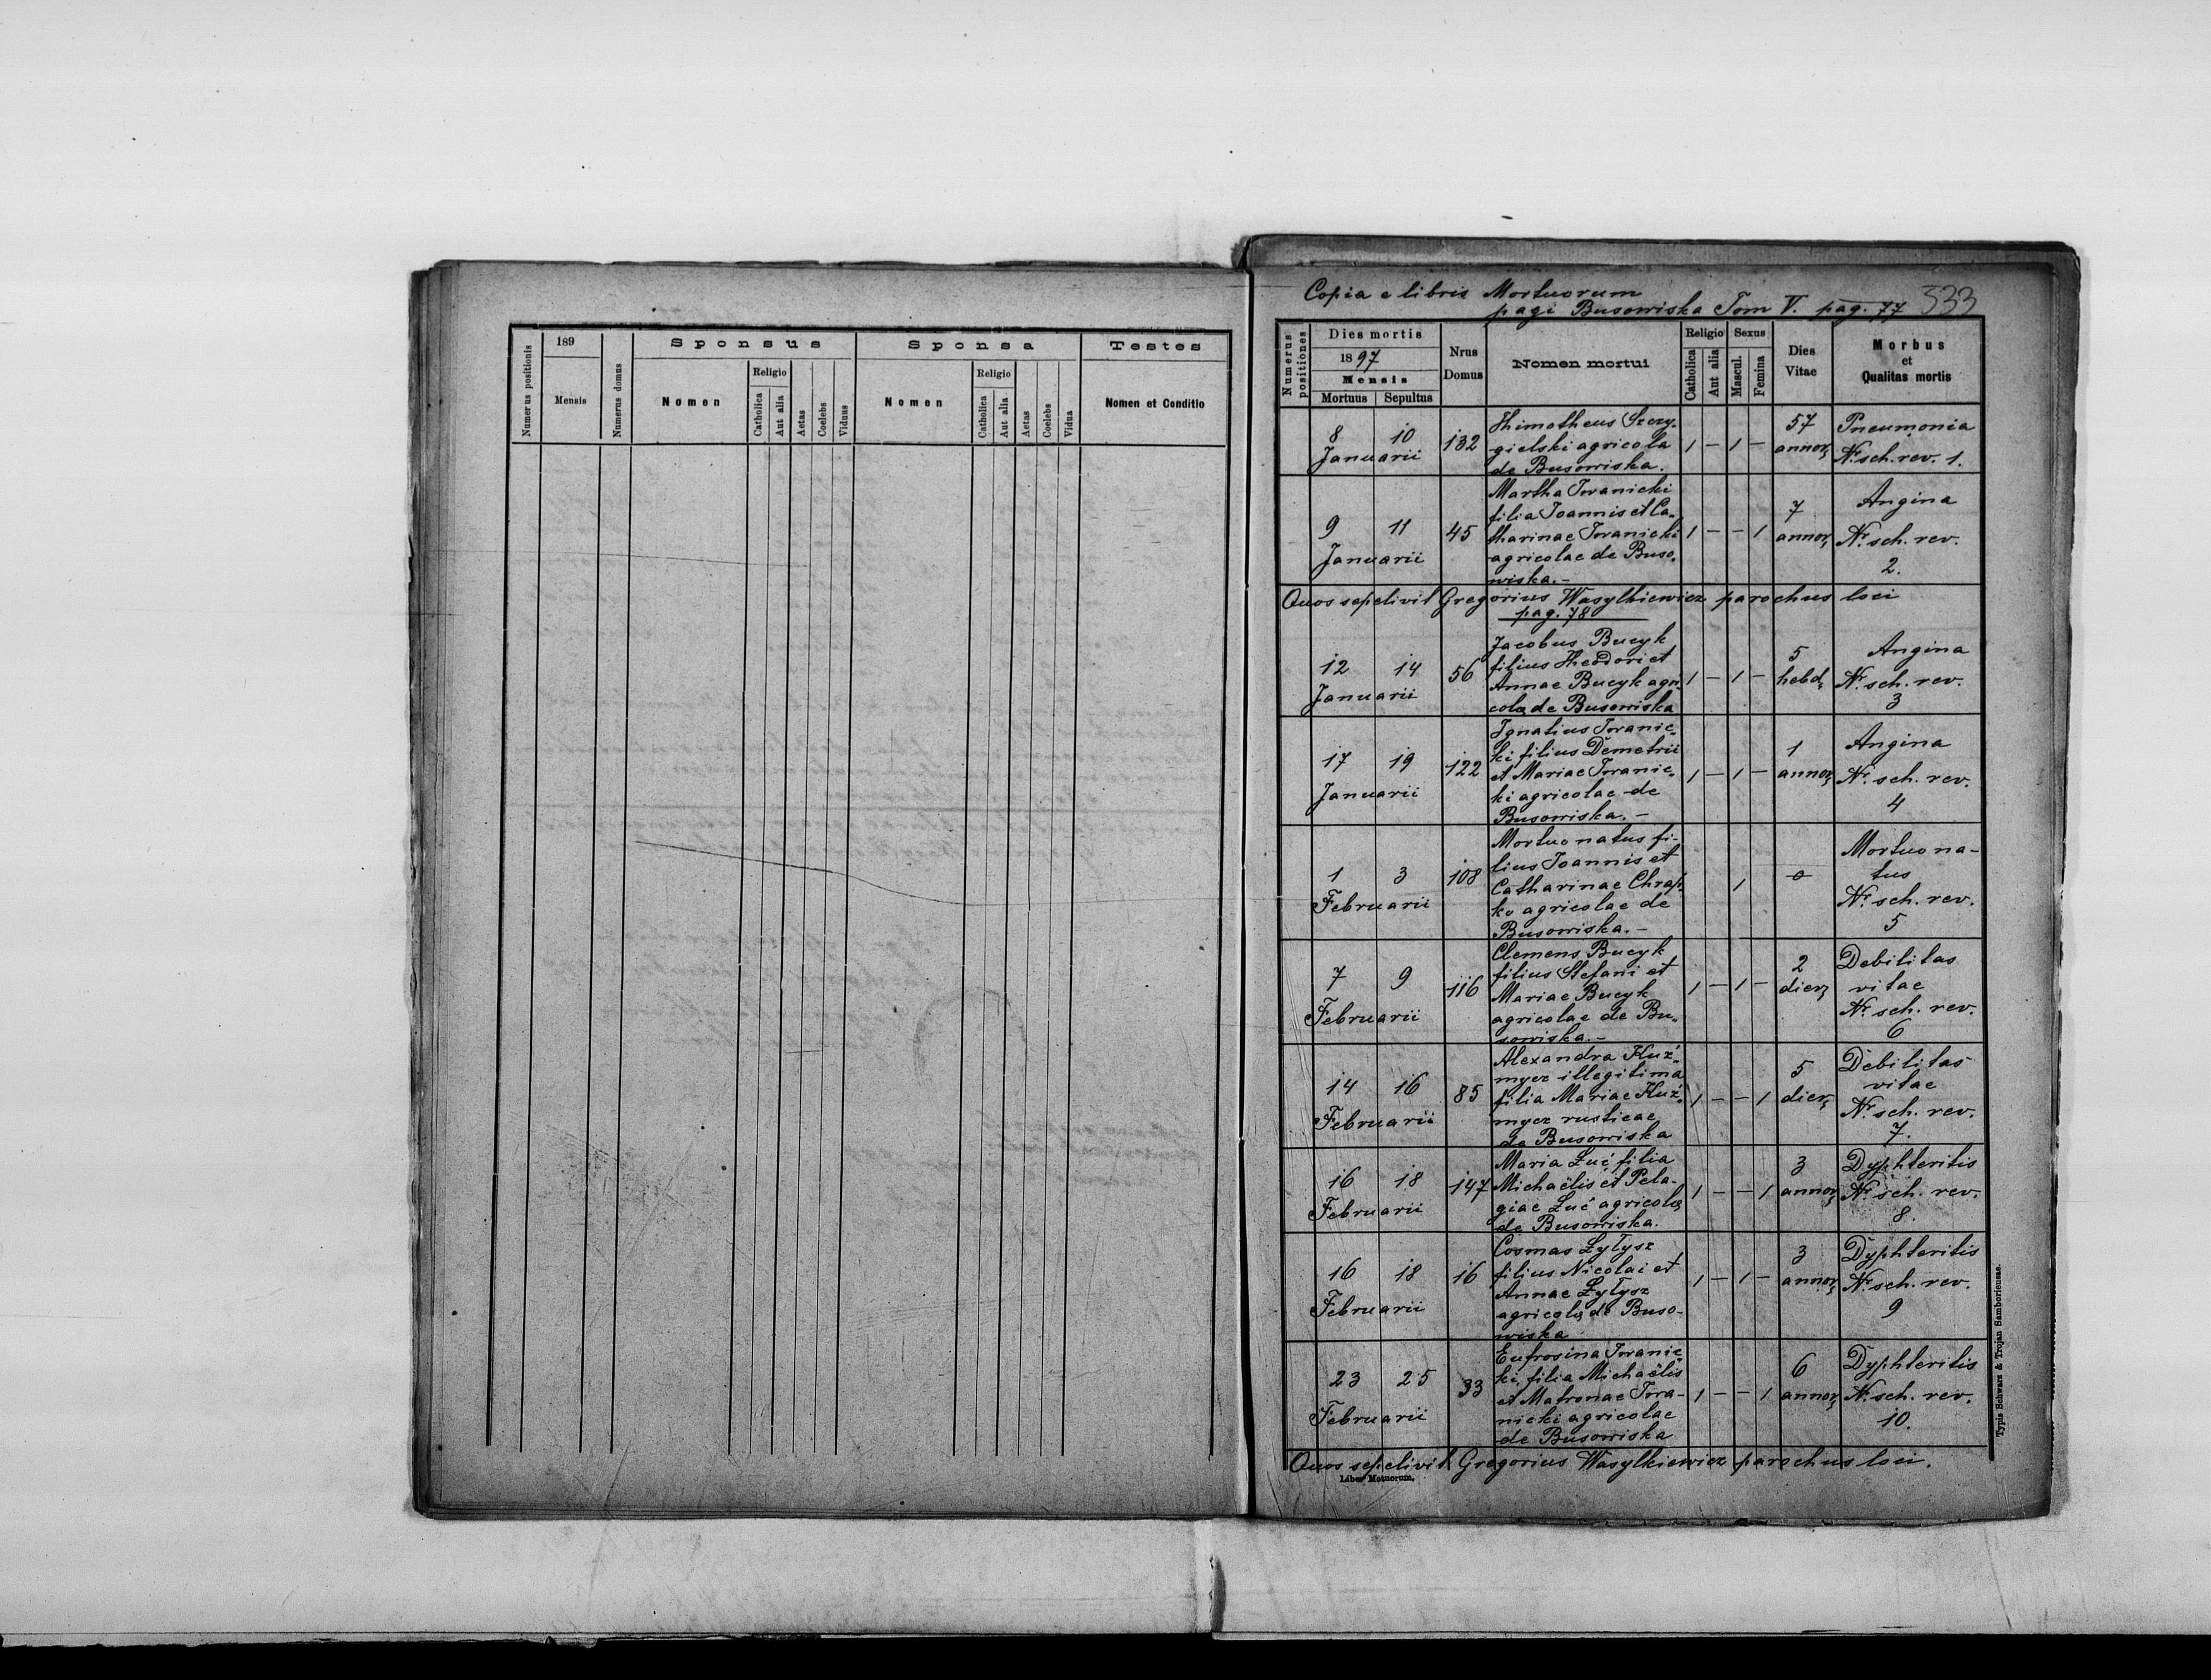 Numerus positionis
189
Mensis
Numerus domus
Sponsus
Nomen
Religio
Catholica
Aut alia
Aetas
Coelebs
Viduus
Sponsa
Nomen
Religio
Catholica
Aut alia
Aetas
Coelebs
Vidua
Testes
Nomen et Conditio
Copia e libris Mortuorum
pagi Busowiska Tom V. pag. 77
333
Numerus positiones
Dies mortis
1897
Mensis
Mortuus Sepultus
Nrus
Domus
Nomen mortui
Religio
Catholica
Aut alia
Sexus
Mascul.
Femina
Dies
Vitae
Morbus
et
Qualitas mortis
8 10
Januarii
132
Thimotheus Szczy-
gielski agricola
de Busowiska.
1 – 1 –
57
annor
Pneumonia
Nr. sch. rev. 1.
9 11
Januarii
45
Martha Iwanicki
filia Joannis et Ca-
tharinae Iwanicki
agricolae de Buso-
wiska.–
1 – – 1
7
annor
Angina
Nr. sch. rev.
2.
Quos sepelivit Gregorius Wasylkiewicz parochus loci
pag. 78
12 14
Januarii
56
Jacobus Bucyk
filius Theodori et
Annae Bucyk agri
cola de Busowiska
1 – 1 –
5
hebd
Angina
Nr. sch. rev.
3
17 19
Januarii
122
Ignatius Iwanic-
ki filius Demetrii
et Mariae Iwanic-
ki agricolae de
Busowiska.–
1 – 1 –
1
annor
Angina
Nr. sch. rev.
4
1 3
Februarii
108
Mortuo natus fi-
lius Joannis et
Catharinae Chrap-
ko agricolae de
Busowiska.–
1
0
Mortuo na-
tus
Nr. sch. rev.
5
7 9
Februarii
116
Clemens Bucyk
filius Stefani et
Mariae Bucyk
agricolae de Bu-
sowiska.–
1 – 1 –
2
dier
Debilitas
vitae
Nr. sch. rev.
6
14 16
Februarii
85
Alexandra Kuź-
mycz illegitima
filia Mariae Kuź-
mycz rusticae
de Busowiska
1 – – 1
5
dier
Debilitas
vitae
Nr. sch. rev.
7.
16 18
Februarii
147
Maria Łuć filia
Michaëlis et Pela-
giae Łuć agricola
de Busowiska.
1 – – 1
3
annor
Dyphteritis
Nr. sch. rev.
8.
16 18
Februarii
16
Cosmas Łytysz
filius Nicolai et
Annae Łytysz
agricola de Buso-
wiska
1 – 1 –
3
annor
Dyphteritis
Nr. sch. rev.
9
23 25
Februarii
33
Eufrosina Iwanic-
ki filia Michaëlis
et Matronae Iwa-
nicki agricolae
de Busowiska
1 – – 1
6
annor
Dyphteritis
Nr. sch. rev.
10.
Quos sepelivit Gregorius Wasylkiewicz parochus loci.
Liber Motuorum.
Typis Schwarz & Trojan Samboriensae.